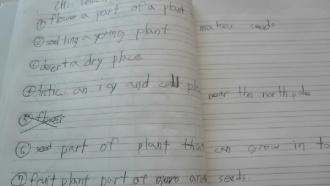 ① flower a part of a plant makes seeds
② seedling a young plant
③ desert a dry place
④ Arctic an icy and cold place near the north pole
⑥ seed part of plant that can grow in to
⑦ fruit plant part of seeds